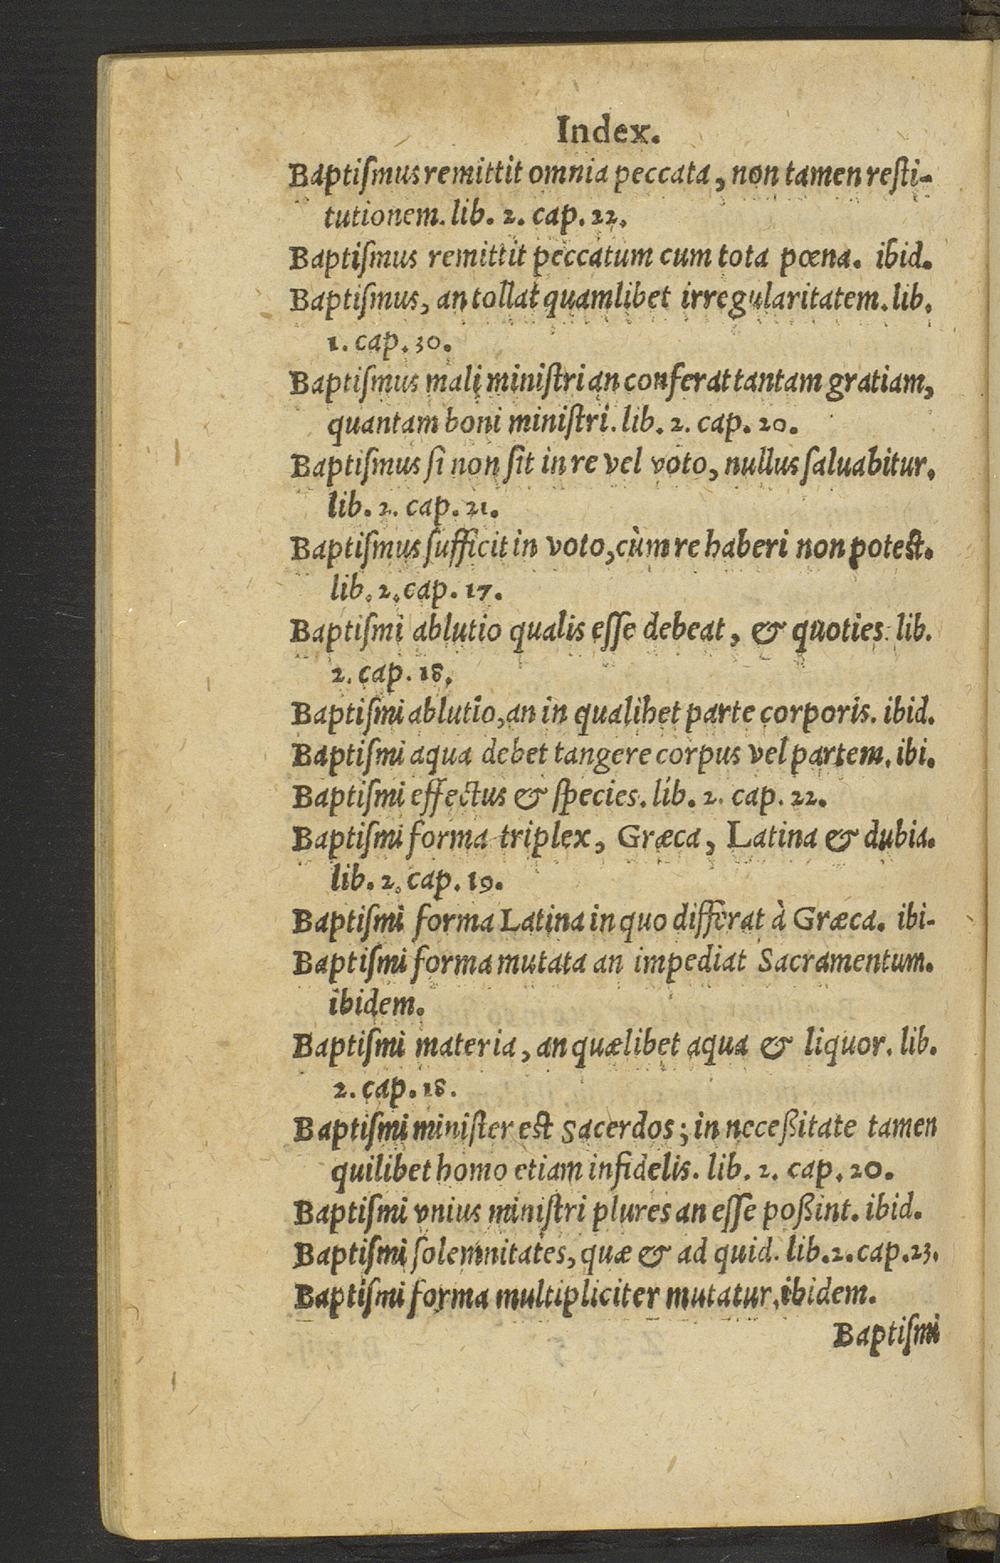 Index.
Baptiſmus remittit omnia peccata, non tamen reſti-
tutionem. lib. 2. cap. 22.
Baptiſmus remittit peccatum cum tota pœna. ibid.
Baptiſmus, an tollat quamlibet irregularitatem. lib.
1. cap. 30.
Baptiſmus mali miniſtri an conferat tantam gratiam,
quantam boni miniſtri. lib. 2. cap. 20.
Baptiſmus ſi non ſit in re vel voto, nullus ſaluabitur.
lib. 2. cap. 21.
Baptiſmus ſufficit in voto, cùm re haberi non poteſt.
lib. 2. cap. 17.
Baptiſmi ablutio qualis eſſe debeat, & quoties. lib.
2. cap. 18.
Baptiſmi ablutio, an in qualibet parte corporis. ibid.
Baptiſmi aqua debet tangere corpus vel partem. ibi.
Baptiſmi effectus & ſpecies. lib. 2. cap. 22.
Baptiſmi forma triplex, Græca, Latina & dubia.
lib. 2. cap. 19.
Baptiſmi forma Latina in quo differat à Græca. ibi-
Baptiſmi forma mutata an impediat Sacramentum.
ibidem.
Baptiſmi materia, an quælibet aqua & liquor. lib.
2. cap. 18.
Baptiſmi miniſter eſt Sacerdos; in neceßitate tamen
quilibet homo etiam infidelis. lib. 2. cap. 20.
Baptiſmi vnius miniſtri plures an eſſe poßint. ibid.
Baptiſmi ſolemnitates, quæ & ad quid. lib. 2. cap. 23.
Baptiſmi forma multipliciter mutatur, ibidem.
Baptiſmi